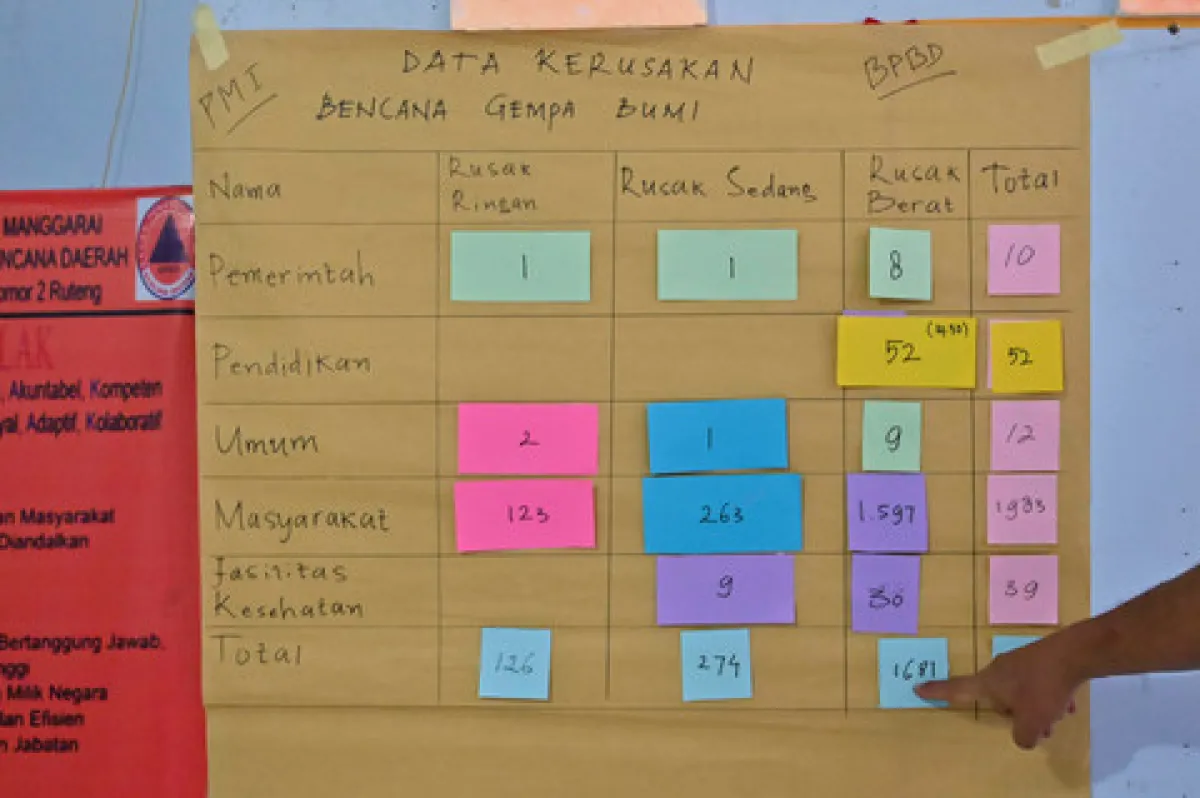 PMI
DATA KERUSAKAN
BENCANA GEMPA BUMI
BPBD
Nama
Rusak
Ringan
Rusak Sedang
Rusak
Berat
Total
Pemerintah 1 1 8 10
Pendidikan 52 52
Umum 2 1 9 12
Masyarakat 123 263 1.597 1983
Fasilitas
Kesehatan 9 30 39
Total 126 274 1681
MANGGARAI
NCANA DAERAH
omor 2 Ruteng
LAK
, Akuntabel, Kompeten
yal, Adaptif, Kolaboratif
an Masyarakat
Diandalkan
Bertanggung Jawab,
nggi
Milik Negara
dan Efisien
n Jabatan